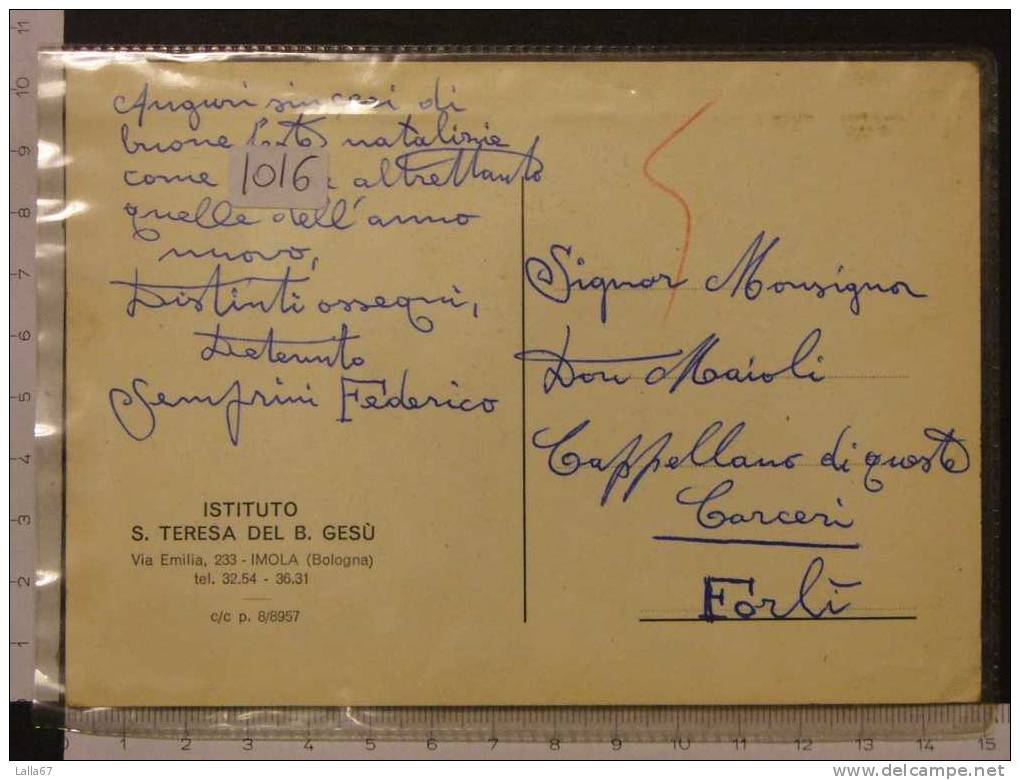 Auguri sinceri di
buone feste natalizie
come altrettanto
quelle dell'anno
nuovo,
Distinti ossequi,
Detenuto
Semprini Federico
1016
ISTITUTO
S. TERESA DEL B. GESÙ
Via Emilia, 233 - IMOLA (Bologna)
tel. 32.54 - 36.31
c/c p. 8/8957
Signor Monsignor
Don Maioli
Cappellano di queste
Carceri
Forlì
11
10
9
8
7
6
5
4
3
2
1
0 1 2 3 4 5 6 7 8 9 10 11 12 13 14 15
Lalla67
delcampe.net